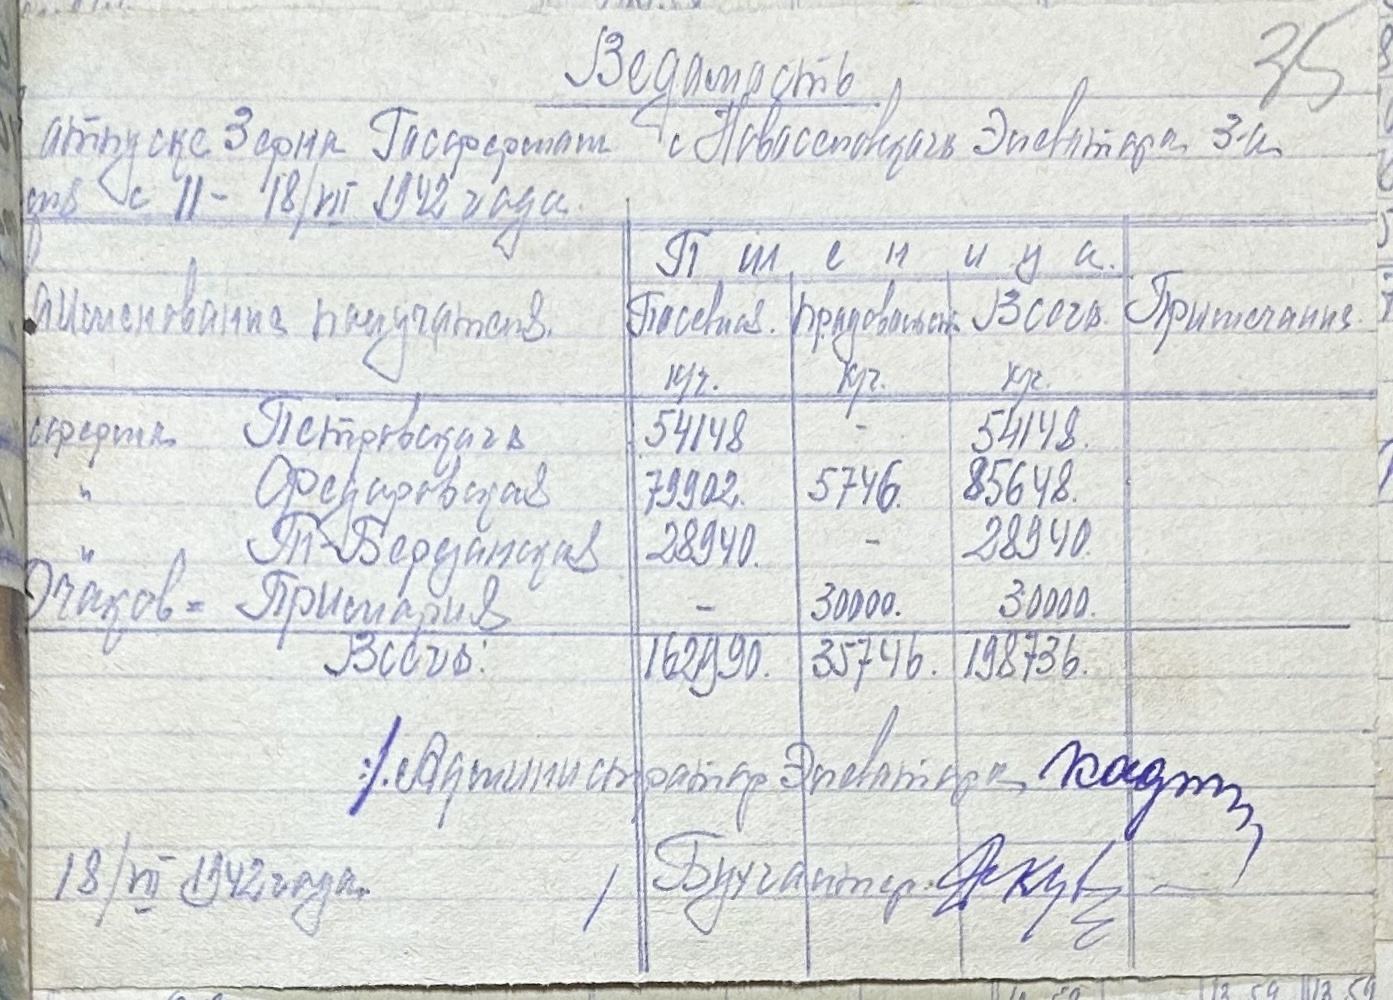 35
Ведамость
атпуске Зерна Гасафермам с Новасёловскага Элеватара З-а
ств с 11-18/VII 1942 года.
Пшеница.
аименование палучателя. Пасевная. Прадовольств. Всего. Примечание.
кг. кг. кг.
Петровскага 54148 - 54148.
" Федаровская 79902. 5746. 85648.
" Т-Берданская 28940. - 28940.
Очаков = Примария - 30000. 30000.
Всего: 162990. 35746. 198736.
Администратар Элеватара
18/VII 1942 года. Бухгалтер.